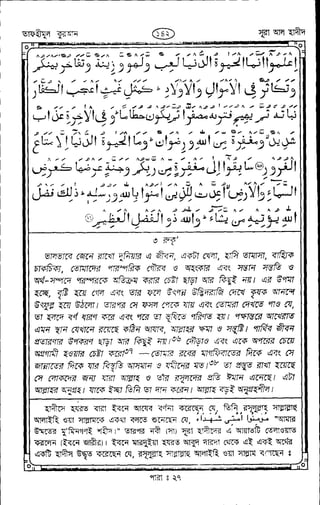 তাফহীমুল কুরআন
১৪২
সূরা আল হাদীদ
اِعْلَمُوْۤا اَنَّمَا الْحَيٰوةُ الدُّنْيَا لَعِبٌ وَّلَهْوٌ وَّزِيْنَةٌ وَّتَفَاخُرٌۢ بَيْنَكُمْ
وَتَكَاثُرٌ فِى الْاَمْوَالِ وَالْاَوْلَادِ ؕ كَمَثَلِ غَيْثٍ اَعْجَبَ الْكُفَّارَ
نَبَاتُهٗ ثُمَّ يَهِيْجُ فَتَرٰىهُ مُصْفَرًّا ثُمَّ يَكُوْنُ حُطَامًا ؕ وَفِى الْاٰخِرَةِ عَذَابٌ
شَدِيْدٌ ۙ وَّمَغْفِرَةٌ مِّنَ اللّٰهِ وَرِضْوَانٌ ؕ وَمَا الْحَيٰوةُ الدُّنْيَاۤ اِلَّا مَتَاعُ
الْغُرُوْرِ ۞ سَابِقُوْۤا اِلٰى مَغْفِرَةٍ مِّنْ رَّبِّكُمْ وَجَنَّةٍ عَرْضُهَا كَعَرْضِ
السَّمَآءِ وَالْاَرْضِ ۙ اُعِدَّتْ لِلَّذِيْنَ اٰمَنُوْا بِاللّٰهِ وَرُسُلِهٖ ؕ ذٰلِكَ فَضْلُ
اللّٰهِ يُؤْتِيْهِ مَنْ يَّشَآءُ ؕ وَاللّٰهُ ذُو الْفَضْلِ الْعَظِيْمِ ۞
৩ রুকূ'
ভালভাবে জেনে রাখো দুনিয়ার এ জীবন, একটা খেলা, হাসি তামাসা, বাহ্যিক
চাকচিক্য, তোমাদের পারস্পরিক গৌরব ও অহংকার এবং সন্তান সন্ততি ও
অর্থ-সম্পদে পরস্পরকে অতিক্রম করার চেষ্টা ছাড়া আর কিছুই নয়। এর উপমা
হচ্ছে, বৃষ্টি হয়ে গেল এবং তার ফলে উৎপন্ন উদ্ভিদরাজি দেখে কৃষক আনন্দে
উৎফুল্ল হয়ে উঠলো। তারপর সে ফসল পেকে যায় এবং তোমরা দেখতে পাও যে,
তা হলদে বর্ণ ধারণ করে এবং পরে তা ভূষিতে পরিণত হয়। পক্ষান্তরে আখেরাত
এমন স্থান যেখানে রয়েছে কঠিন আযাব, আল্লাহর ক্ষমা ও সন্তুষ্টি। পার্থিব জীবন
প্রতারণার উপকরণ ছাড়া আর কিছুই নয়। দৌড়াও এবং একে অপরের চেয়ে
অগ্রগামী হওয়ার চেষ্টা করো —তোমার রবের মাগফিরাতের দিকে এবং সে
জান্নাতের দিকে যার বিস্তৃতি আসমান ও যমীনের মত। তা প্রস্তুত রাখা হয়েছে
সে লোকদের জন্য যারা আল্লাহ ও তাঁর রসূলদের প্রতি ঈমান এনেছে। এটা
আল্লাহর অনুগ্রহ। যাকে ইচ্ছা তিনি তা দান করেন। আল্লাহ বড়ই অনুগ্রহশীল।
হাদীসে হযরত বারা ইবনে আযেব বর্ণনা করেছেন যে, তিনি রসূলুল্লাহ সাল্লাল্লাহু
আলাইহি ওয়া সাল্লামকে একথা বলতে শুনেছেন যে, "আমার
উম্মতের মু'মিনগণই শহীদ।" তারপর নবী (সা) সূরা হাদীদের এ আয়াতটি তেলাওয়াত
করলেন (ইবনে জারীর)। ইবনে মারদুইয়া হযরত আবুদ দারদা থেকে এই একই অর্থের
একটি হাদীস উদ্ধৃত করেছেন যে, রসূলুল্লাহ সাল্লাল্লাহু আলাইহি ওয়া সাল্লাম বলেছেন ঃ
পারা ঃ ২৭